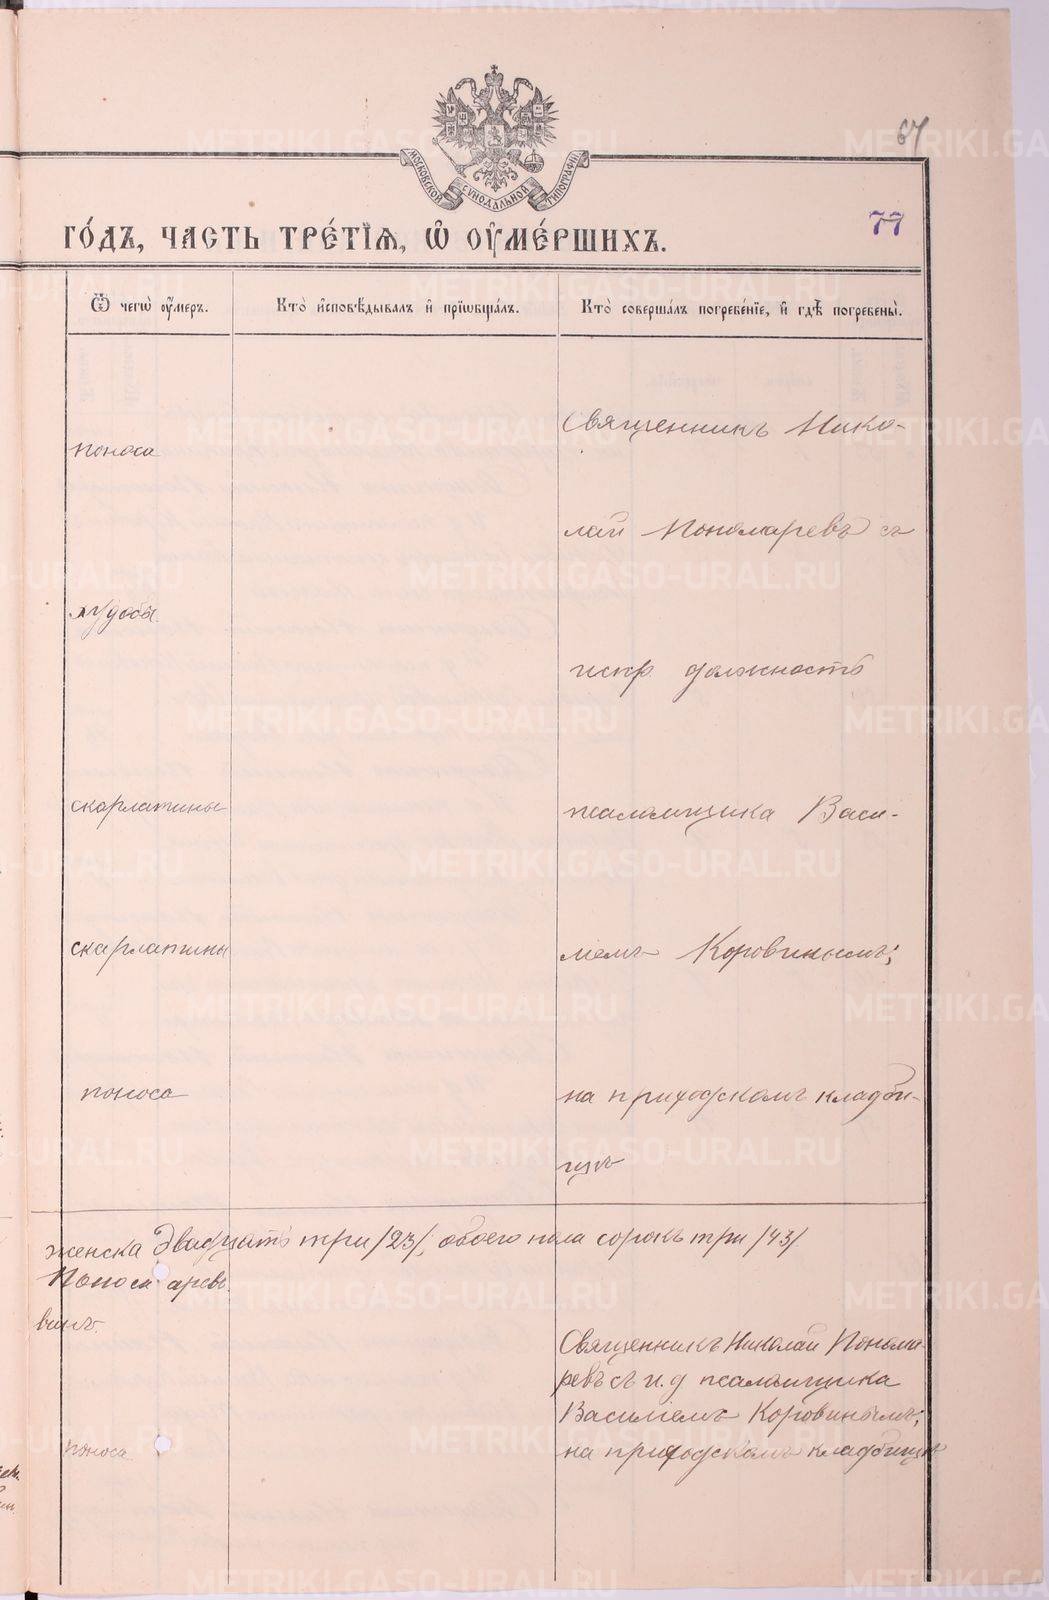 МОСКОВСКОЙ СѴНОДАЛЬНОЙ ТИПОГРАФІИ
77
ГО́ДЪ, ЧАСТЬ ТРЕ́ТІѦ, Ѡ҆ ОУ҆МЕ́РШИХЪ.
Ѿ чегѡ̀ оу҆́меръ.
Кто̀ и҆сповѣ́дывалъ и҆ прїѡбща́лъ.
Кто̀ соверша́лъ погребе́нїе, и҆ гдѣ̀ погребены̀.
Священникъ Нико-
поноса
лай Пономаревъ съ
худобы
испр. должность
скарлатины
псаломщика Васи-
скарлатины
ліемъ Коровинымъ;
поноса
на приходскомъ кладби-
щѣ
женска двадцать три /23/, обоего пола сорокъ три /43/
Пономаревъ
винъ
Священникъ Николай Понома-
ревъ съ и. д псаломщика
Василіемъ Коровинымъ;
поноса
на приходскомъ кладбищѣ
METRIKI.GASO-URAL.RU